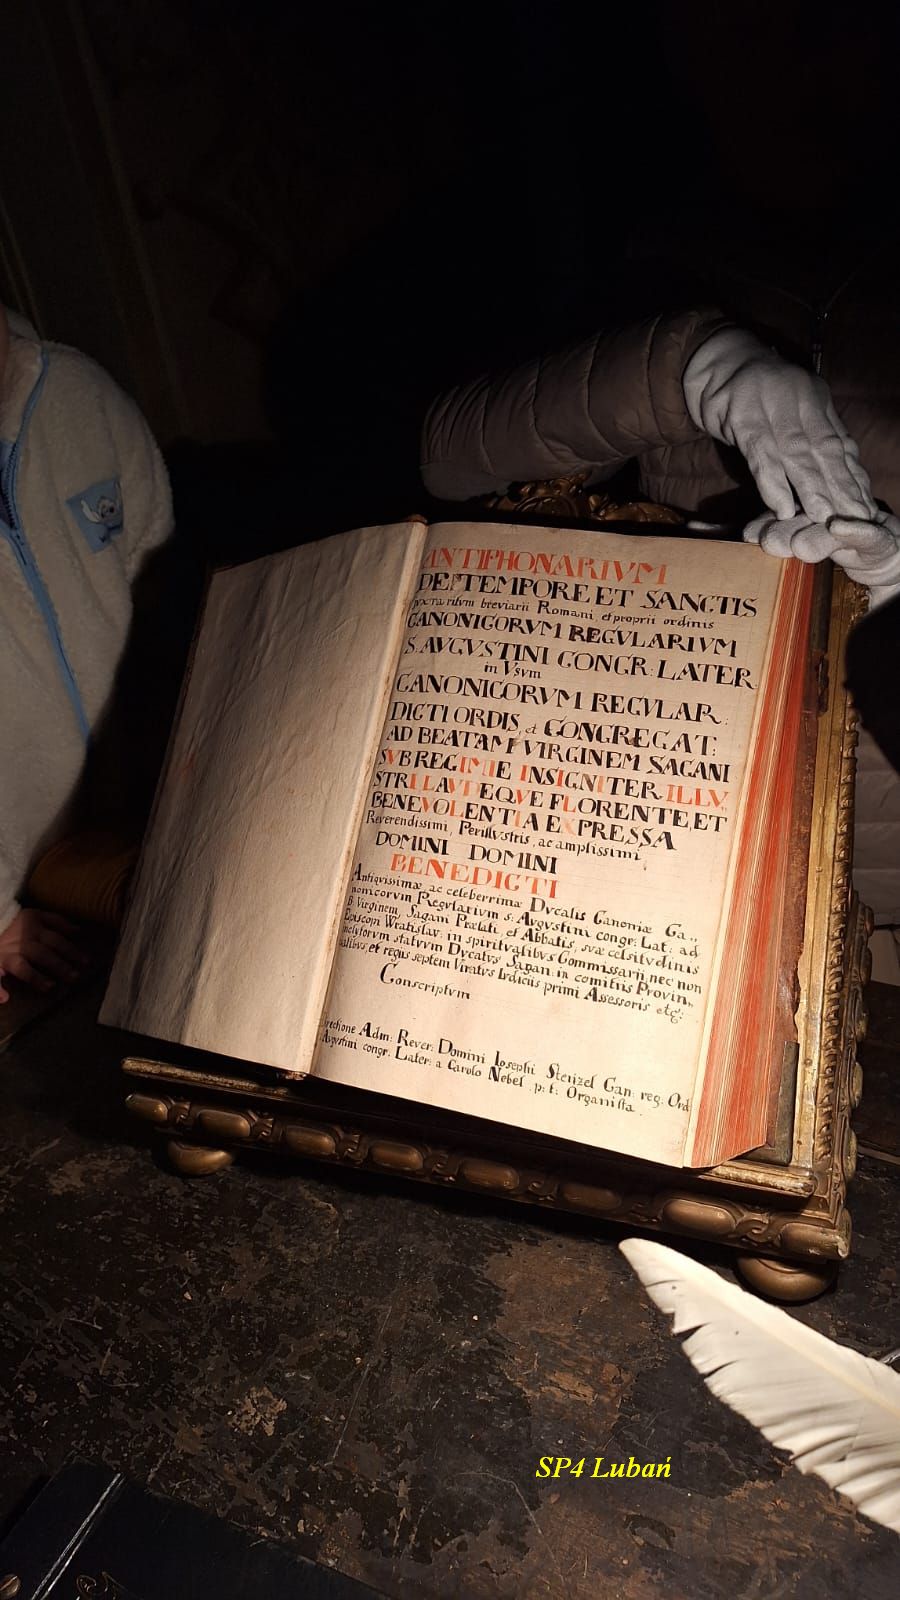 ANTIPHONARIVM
DE TEMPORE ET SANCTIS
juxta ritum breviarii Romani, et proprii ordinis
CANONICORVM REGVLARIVM
S. AVGVSTINI CONGR: LATER.
in Vsum
CANONICORVM REGVLAR:
DICTI ORDIS, et CONGREGAT:
AD BEATAM VIRGINEM SAGANI
SVB REGIMIE INSIGNITER ILLV,
STRI LAVDEQVE FLORENTE, ET
BENEVOLENTIA EXPRESSA
Reverendissimi, Perillvstris, ac amplissimi
DOMINI DOMINI
BENEDICTI
Antiqvissimæ ac celeberrimæ Dvcalis Canoniæ Ca,,
nonicorvm Regvlarivm s: Avgvstini congr: Lat: ad
B Virginem, Sagani Prælati, et Abbatis, svæ celsitvdinis
Episcopi Wratislav: in spiritvalibvs Commissarii, nec non
inclytorvm statvvm Dvcatvs Sagan: in comitiis Provin,,
cialibvs, et regiis septem Viratvs Ivdiciis primi Assessoris etc:
Conscriptvm
Directione Adm: Rever: Domini Iosephi Stenzel Can: reg: Ord:
Avgvstini congr: Later: a Carolo Nebel p: t: Organista.
SP4 Lubań